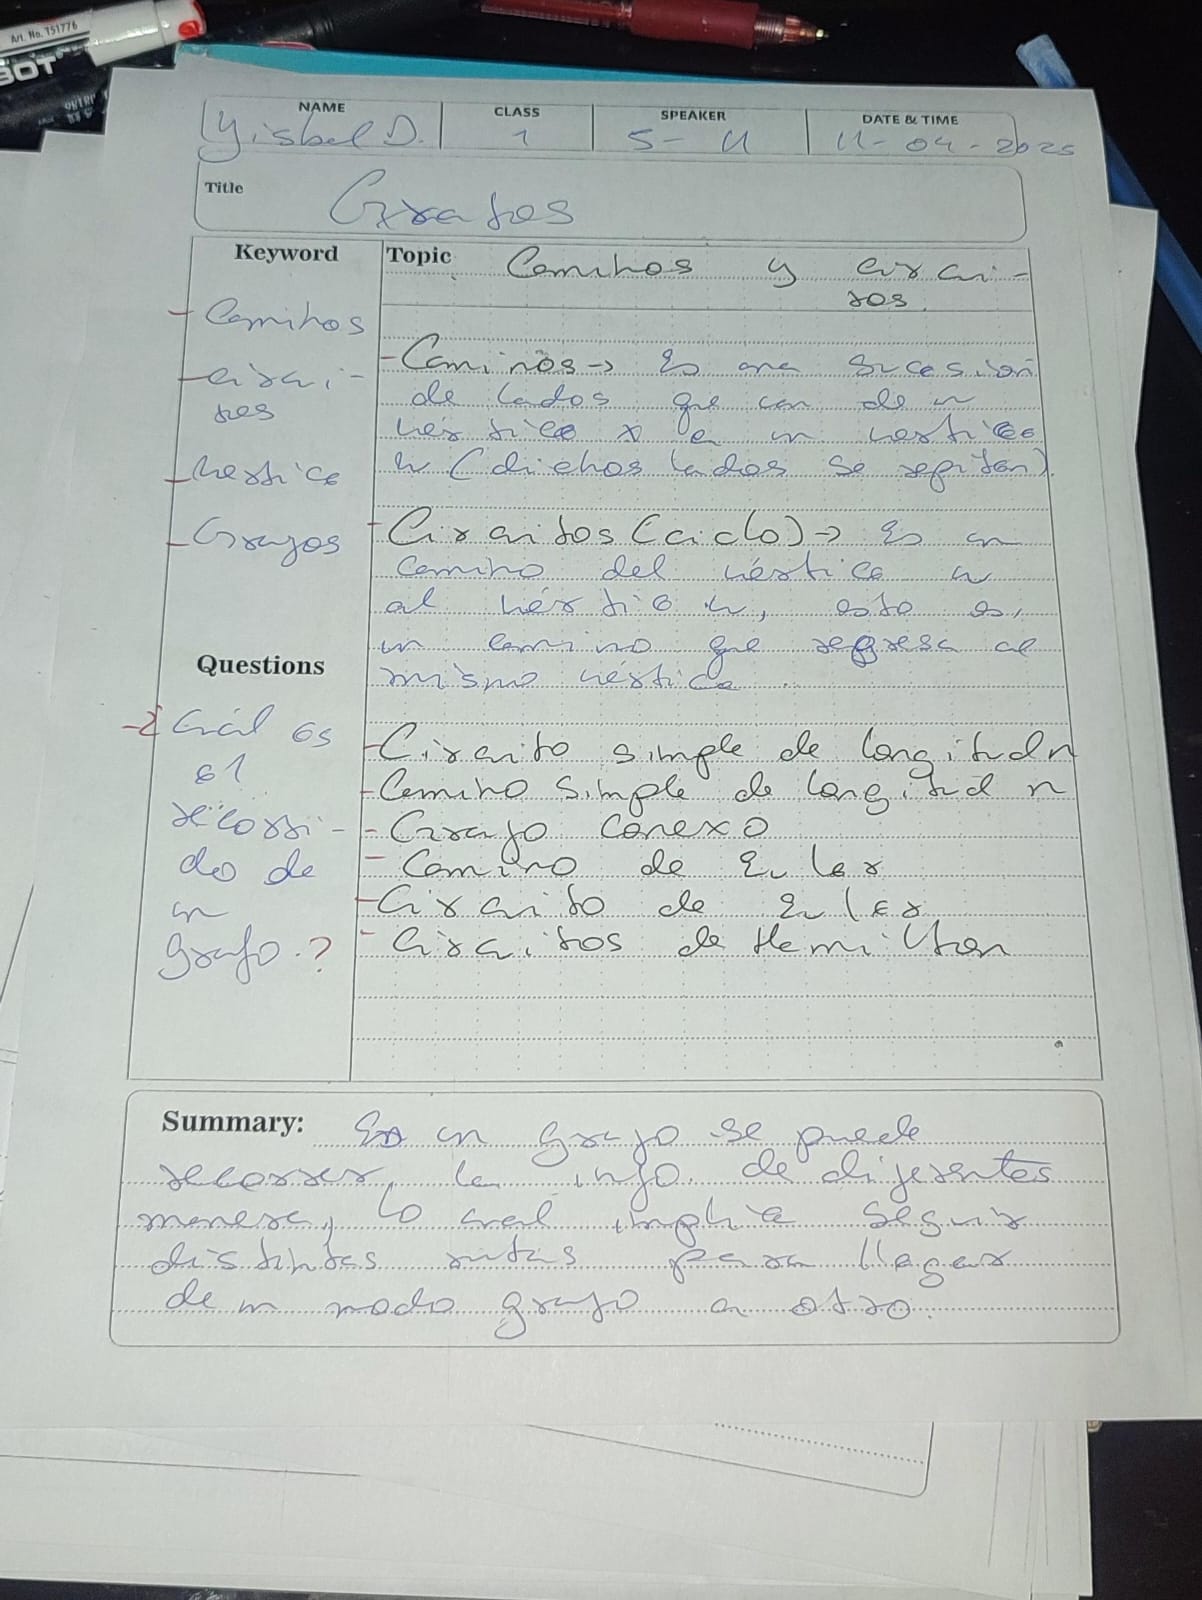 Art. No. 151776
BOT
NAME
CLASS
SPEAKER
DATE & TIME
Yisbel D.
1
S- U
11-04-2025
Title
Grafos
Keyword
- Caminos
- circui-
tos
- Vertice
- Grafos
Questions
- ¿Cuál es
el
recorri-
do de
un
grafo.?
Topic
Caminos y circui-
tos
- Caminos → Es una sucesion
de lados que van de un
vertice x a un vertice
w (dichos lados se repiten).
- Circuitos (ciclo) → Es un
camino del vértice w
al vértice w, esto es,
un camino que regresa al
mismo vértice.
- Circuito simple de longitud n
- Camino simple de longitud n
- Grafo conexo
- Camino de Euler
- Circuito de Euler
- Circuitos de Hamilton
Summary:
En un grafo se puede
recorrer la info. de diferentes
manera, lo cual implica seguir
distintas rutas para llegar
de un nodo grafo a otro.